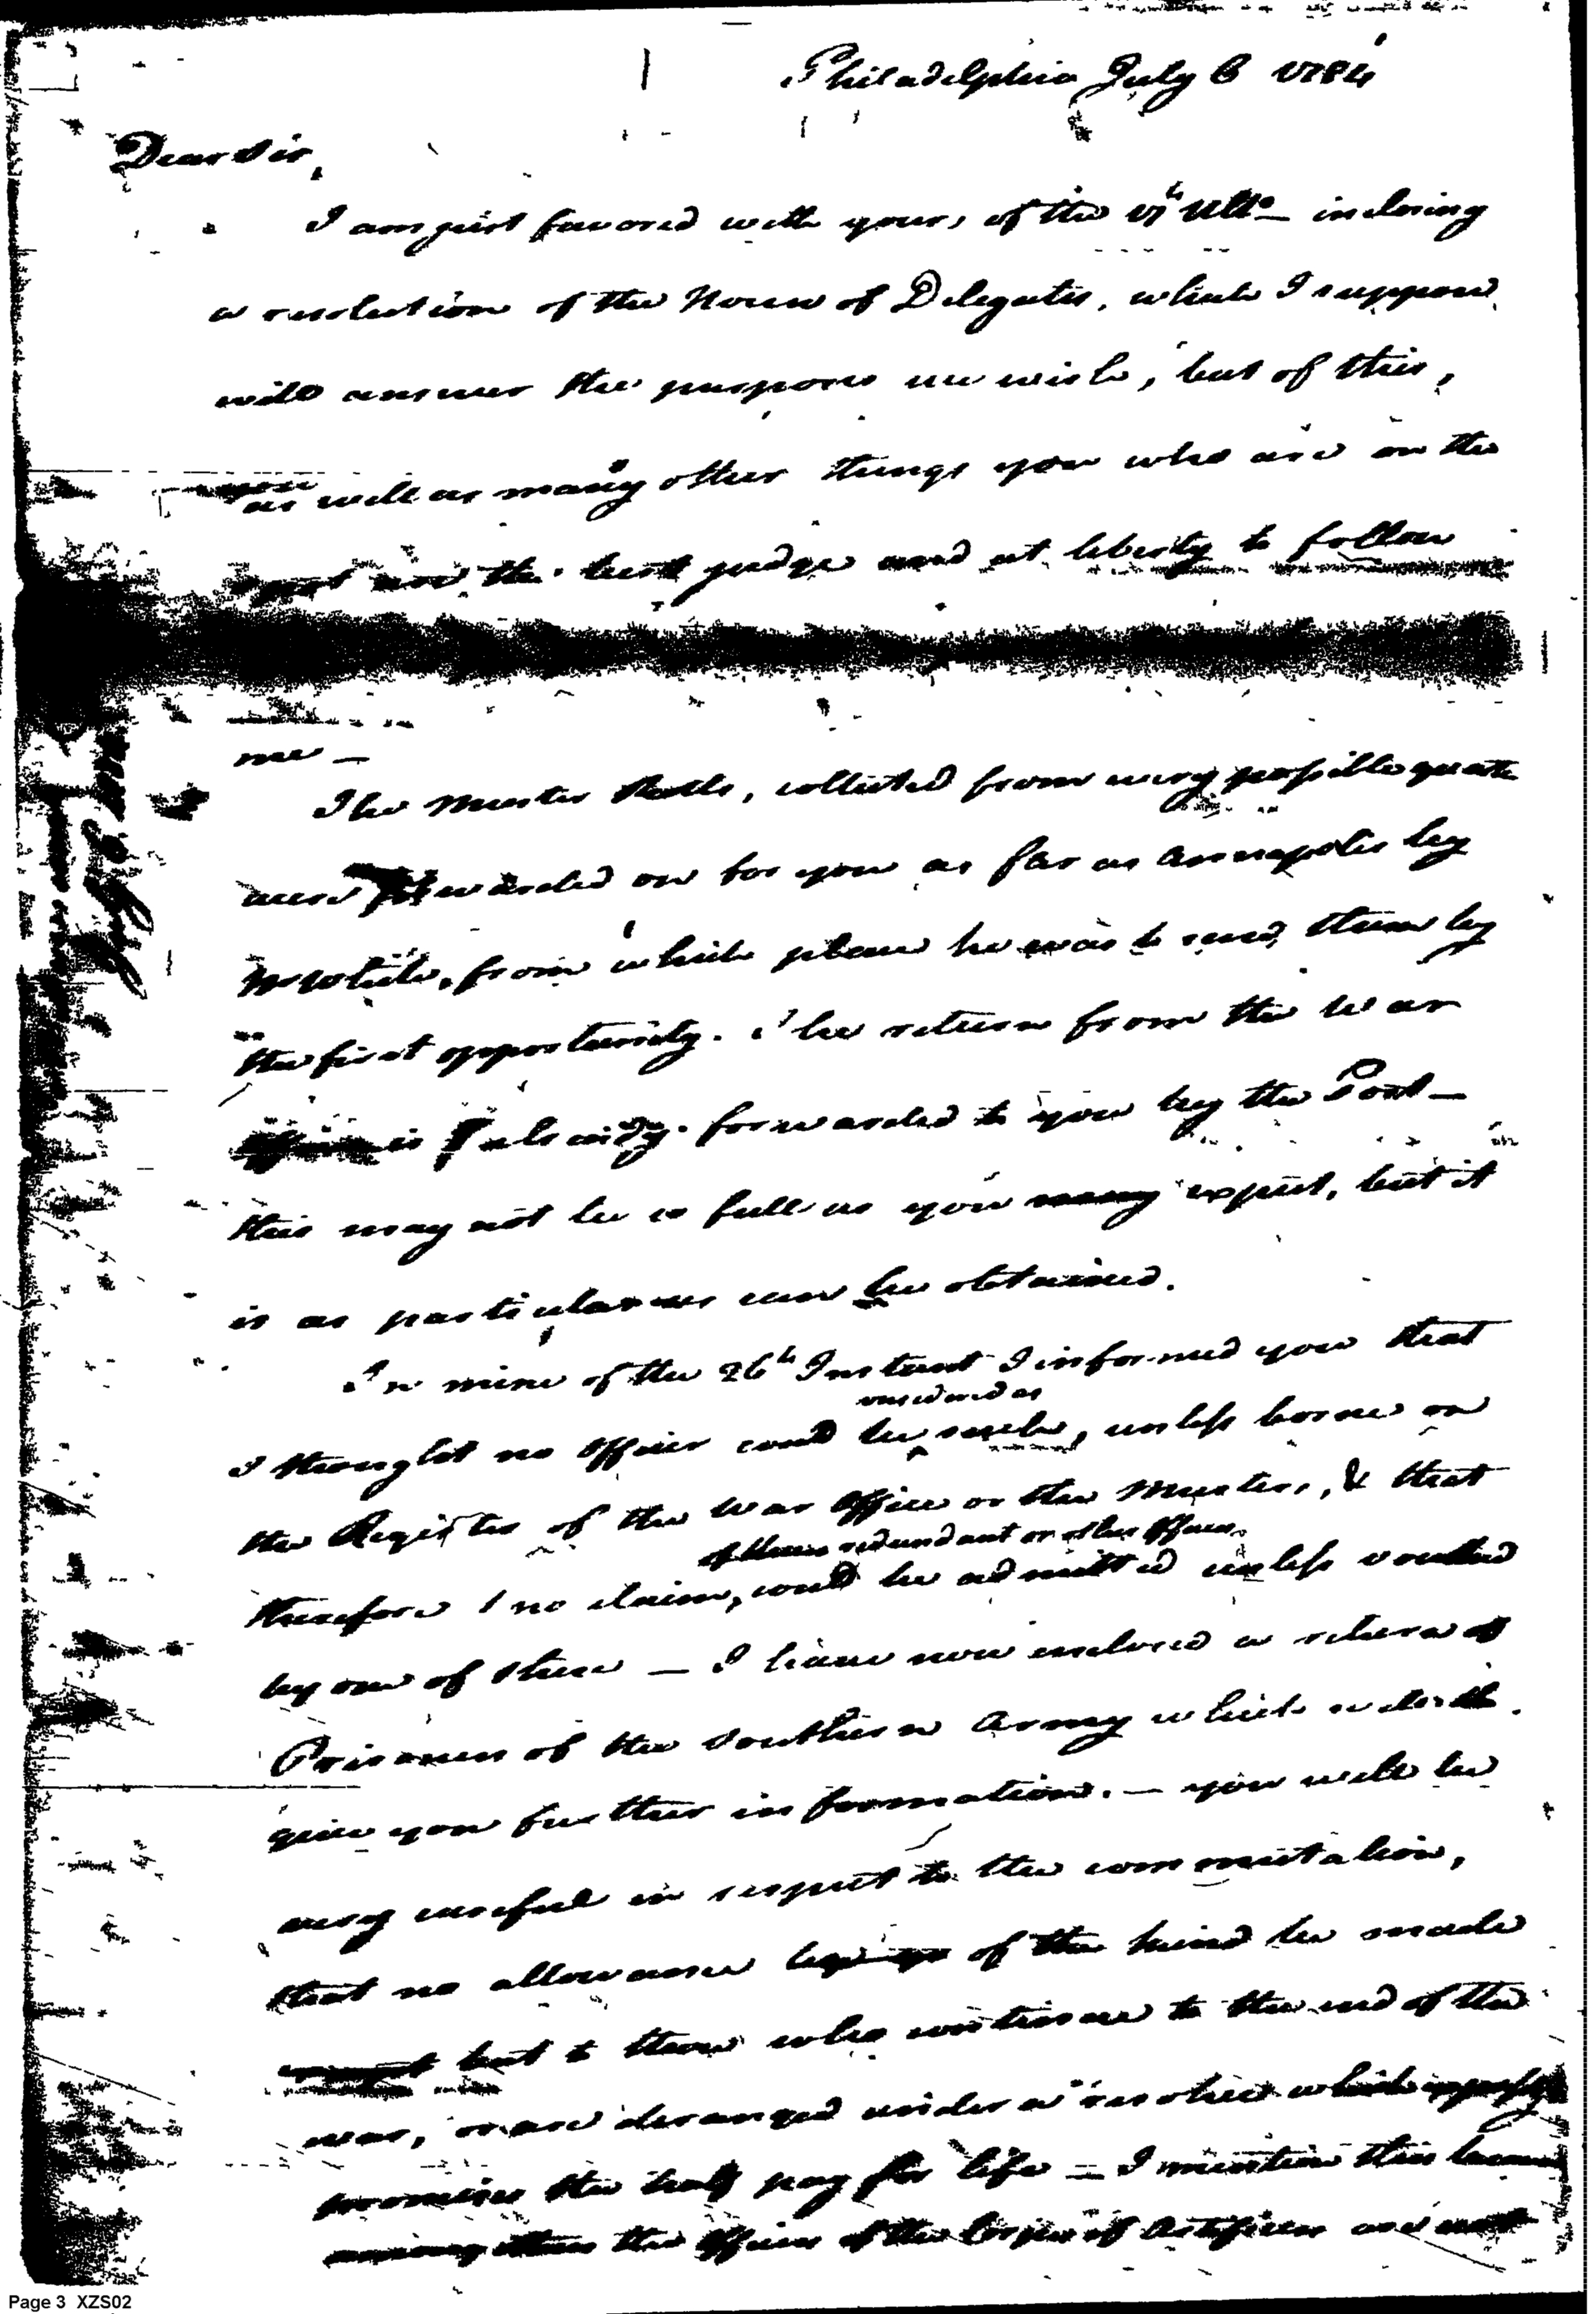 Philadelphia July 6 1784
Dear Sir,
I am just favored with yours of the 17th Ulto— inclosing
a resolution of the House of Delegates, which I suppose
will answer the purposes we wish, but of this,
as well as many other things you who are on the
spot are the best judge and at liberty to follow
me —
The Muster Rolls, collected from every possible quarter
were forwarded on for you as far as Annapolis by
Mr White, from which place he was to send them by
the first opportunity. The return from the War
Office is already forwarded to you by the Post —
this may not be so full as you expect, but it
is as particular as can be obtained.
In mine of the 26th Instant I informed you that
considered as
I thought no Officer could be such, unless borne on
the Register of the War Office or the Musters, & that
of these redundant or other Officers
therefore no claim, could be admitted unless vouched
by one of these — I have now enclosed a return of
Prisoners of the Southern Army which will
give you further information. — you will be
very careful in respect to the commutation,
that no allowance of the kind be made
but to those who continued to the end of the
war, or are deranged under a resolve which expressly
promises the half pay for life — I mention this because
the Officers of the Corps of Artificers are not
Page 3 XZS02